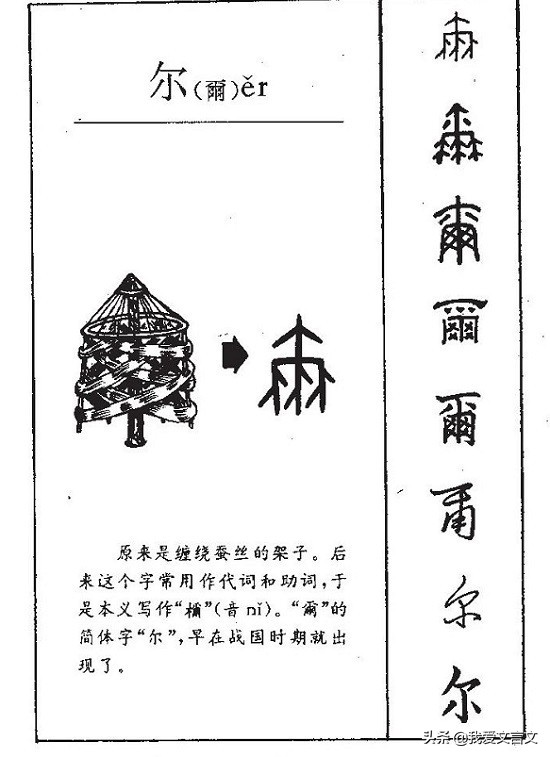 尔(爾)ěr
原来是缠绕蚕丝的架子。后
来这个字常用作代词和助词,于
是本义写作“檷”(音nǐ)。“爾”的
简体字“尔”,早在战国时期就出
现了。
爾
爾
尔
尔
头条@我爱文言文